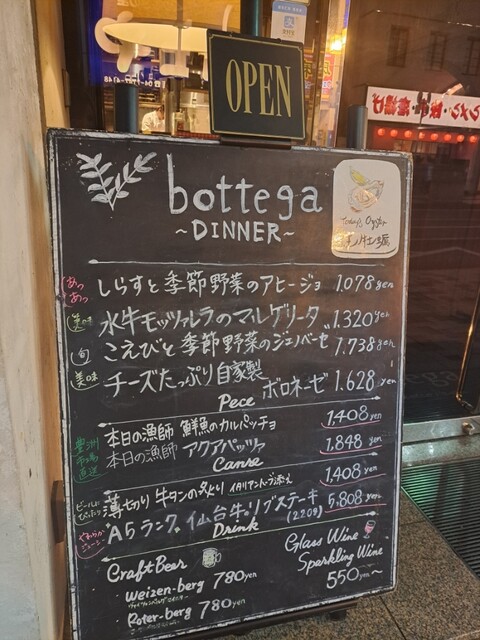 OPEN
bottega
~DINNER~
Today's Oyster
あつあつ しらすと季節野菜のアヒージョ 1.078 yen
美味 水牛モッツァレラのマルゲリータ 1.320 yen
旬 こえびと季節野菜のジェノベーゼ 1.738 yen
美味 チーズたっぷり自家製ボロネーゼ 1.628 yen
Pece
豊洲市場直送 本日の漁師 鮮魚のカルパッチョ 1,408 yen
本日の漁師 アクアパッツァ 1,848 yen
Canre
ビールにぴったり 薄切り 牛タンの炙り イタリアンハーブ添え 1,408 yen
やわらかジューシー A5ランク 仙台牛リブステーキ (220g) 5.808 yen
Drink
Craft Beer
weizen-berg 780 yen
Roter-berg 780 yen
Glass Wine
Sparkling Wine
550 yen~